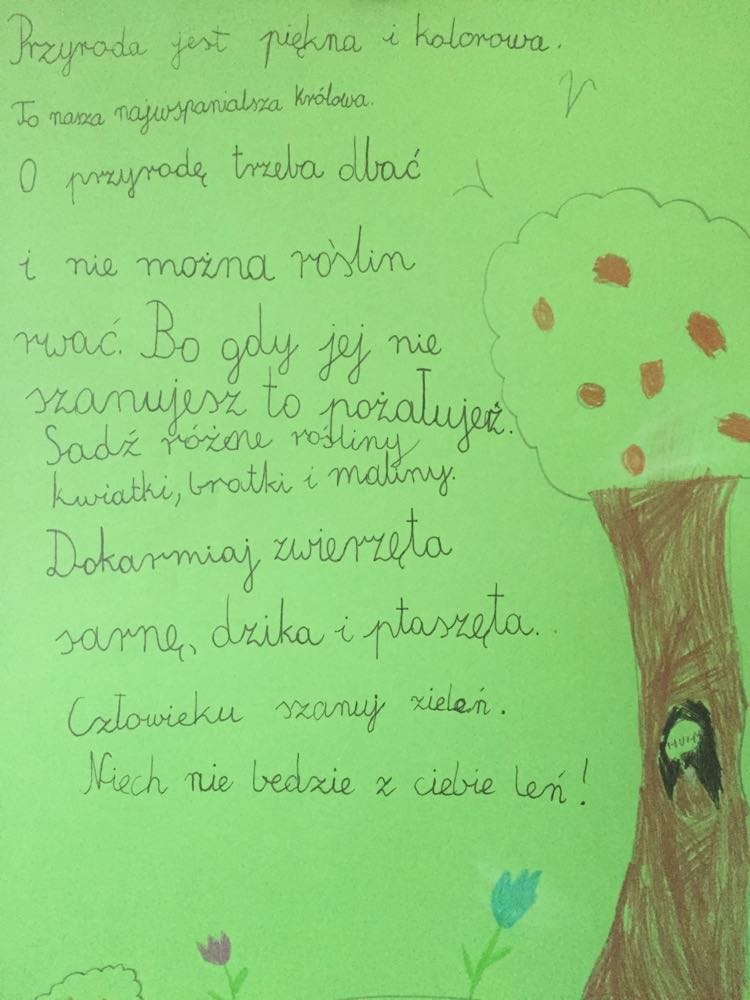 Przyroda jest piękna i kolorowa.
To nasza najwspanialsza królowa.
O przyrodę trzeba dbać
i nie można roślin
rwać. Bo gdy jej nie
szanujesz to pożałujesz.
Sadź różne rośliny
kwiatki, bratki i maliny.
Dokarmiaj zwierzęta
sarnę, dzika i ptaszęta.
Człowieku szanuj zieleń.
HUHU
Niech nie bedzie z ciebie leń!